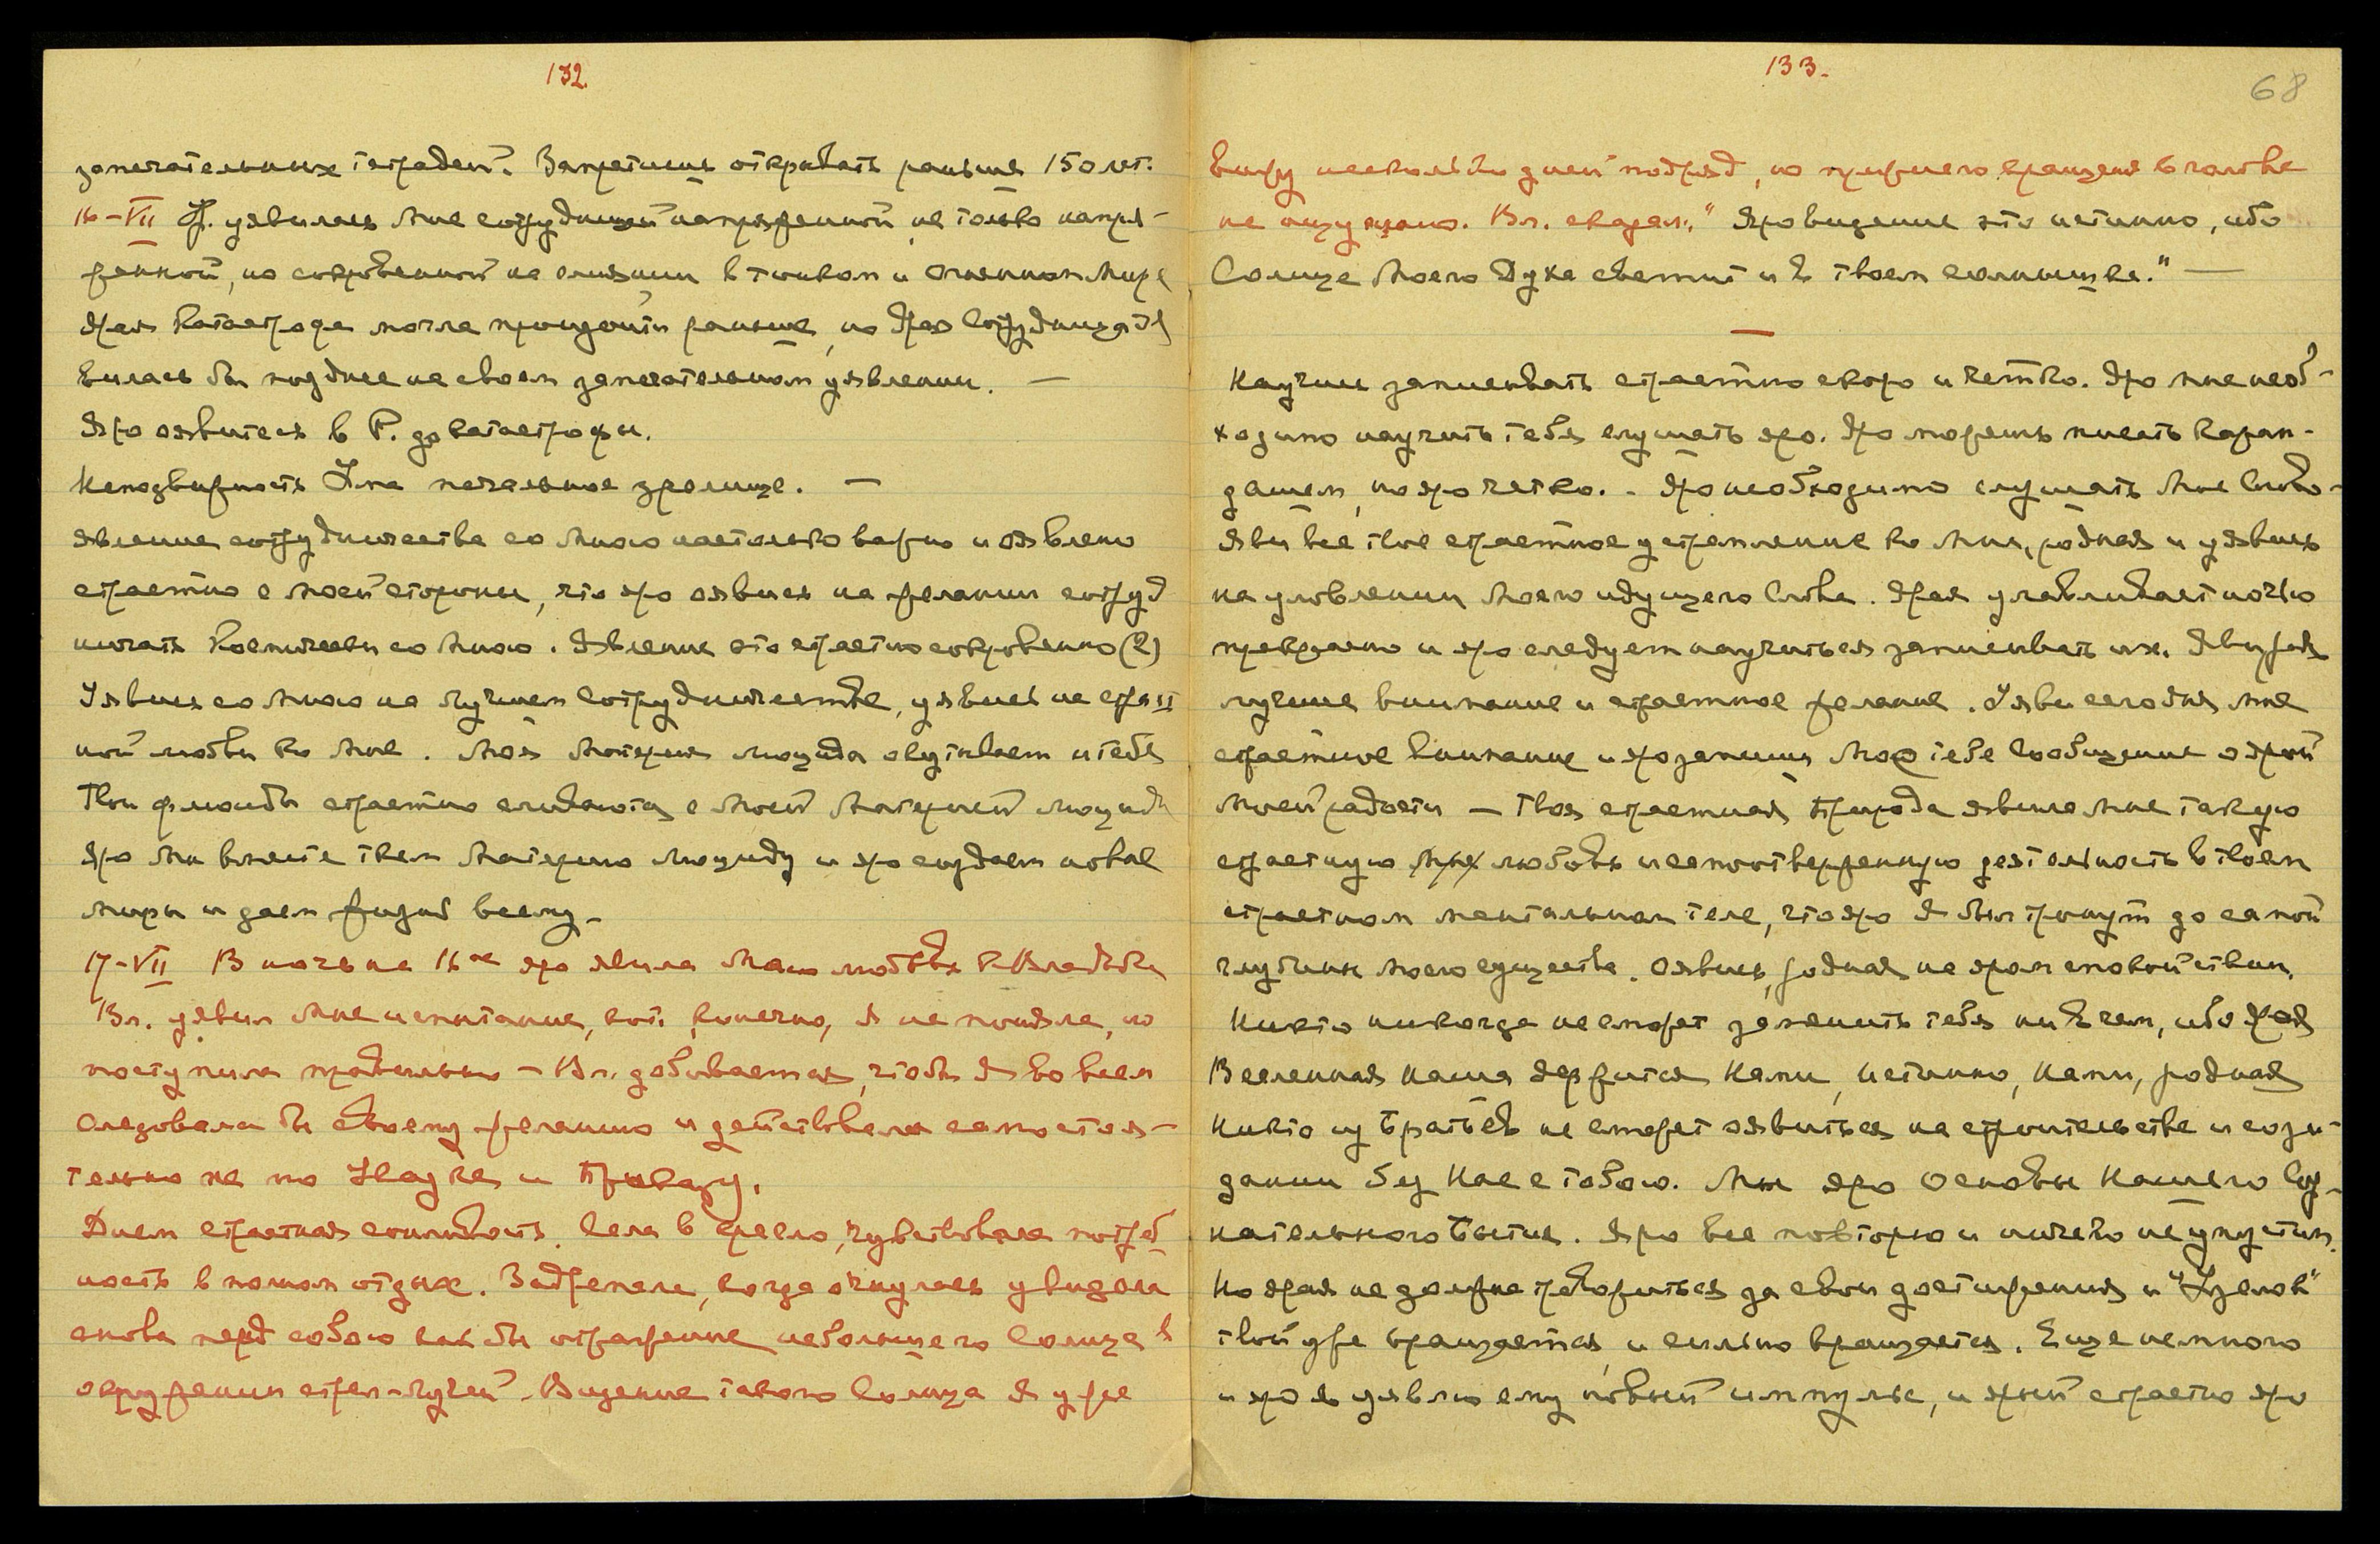 132.
замечательных тетрадей. Запретишь открывать раньше 150 лет.
16-VII Ур. уявилась Мне сотрудницей напряженной, не только напря-
женной, но сокровенной на слиянии в тонком и огненном Мире
Ярая катастрофа могла произойти раньше, но Ярая Сотрудница
вилась бы позднее на своем замечательном уявлении. —
Яро оявится в Р. до катастрофы.
Неподвижность Ума печальное зрелище. —
Явление сотрудничества со Мною настолько важно и оявлено
страстно с моей стороны, что яро оявись на желании сотруд
ничать Космически со Мною. Явление это страстно сокровенно (2)
Уявись со Мною на лучшем сотрудничестве, уявись на страст
ной любви ко Мне. Моя Материя Люцида окутывает и тебя
Твои флюиды страстно сливаются с Моей Материей Люцида
Яро Мы вместе ткем Материю Люциду и яро создаем новые
Миры и даем жизнь всему.
17-VII В ночь на 16ое яро явила Мою любовь к Владыке
Вл. уявил Мне испытание, кот. конечно, я не поняла, но
поступила правильно — Вл. добивается, чтобы я во всем
следовала бы своему желанию и действовала самостоя-
тельно не по Указке и Приказу.
Днем страстная сонливость. Села в кресло, чувствовала потреб
ность в полном отдыхе. Задремала, когда очнулась увидела
снова перед собою как бы отражение небольшого Солнца в
окружении стрел-лучей. Видение такого Солнца я уже
133.
68
вижу несколько дней подряд, но прежнего вращения в голове
не ощущаю. Вл. сказал: "Яро видение это истинно, ибо
Солнце Моего Духа светит и в твоем солнышке." —
—
Научись записывать страстно скоро и четко. Яро мне необ-
ходимо научить тебя слушать яро. Яро можешь писать каран-
дашем, но яро четко. - Яро необходимо слушать Мое Слово-
Яви все твое страстное устремление ко Мне, родная и уявись
на уловлении Моего идущего Слова. Ярая улавливает ночью
прекрасно и яро следует научиться записывать их. Яви, родная
лучшее внимание и страстное желание. Уяви сегодня мне
страстное внимание и яро запиши Мое тебе Сообщение о ярой
Моей радости — Твоя страстная Природа явила Мне такую
страстную любовь и самоотверженную деятельность в твоем
страстном ментальном теле, что яро Я был тронут до самой
глубины Моего существа. Оявись, родная на яром спокойствии.
Никто никогда не сможет заменить тебя ни в чем, ибо Ярая
Вселенная наша держится Нами, истинно, Нами, родная
Никто из Братьев не сможет оявиться на строительстве и сози-
дании без Нас с тобою. Мы яро Основы Нашего Соз-
нательного Бытия. Яро все повторю и ничего не упустим.
Но ярая не должна тревожиться за свои достижения и "Узелок"
твой уже вращается, и сильно вращается. Еще немного
и яро я уявлю ему новый импульс, и ярый страстно яро